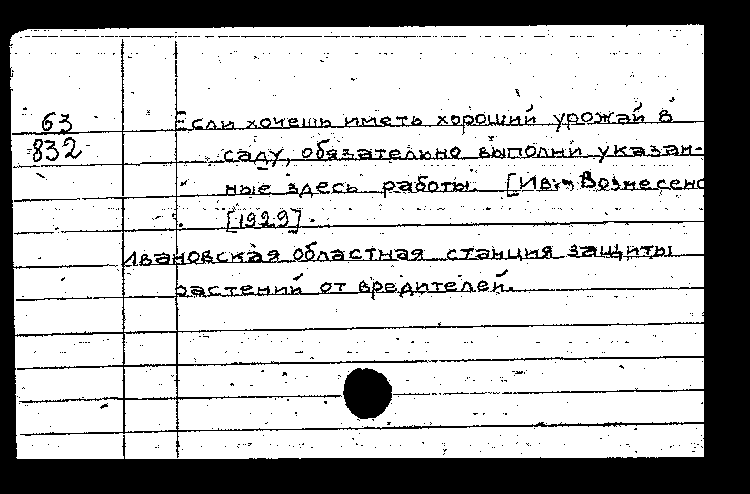 63
832
Если хочешь иметь хороший урожай в
саду, обязательно выполни указан-
ные здесь работы. [Ив.-Вознесенс
[1929].
Ивановская областная станция защиты
растений от вредителей.